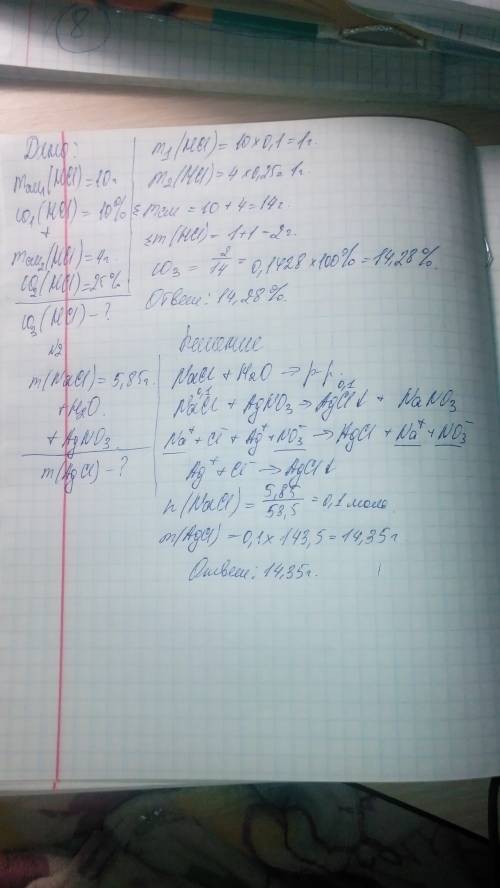 8
Дано:
mсм1(HCl)=10г
ω1(HCl)=10%
+
mсм2(HCl)=4г
ω2(HCl)=25%
ω3(HCl)-?
m1(HCl)=10×0,1=1г.
m2(HCl)=4×0,25=1г.
Σmсм=10+4=14г.
Σm(HCl)=1+1=2г.
ω3=2/14=0,1428×100%=14,28%.
Ответ: 14,28%.
N2
m(NaCl)=5,85г.
+H2O.
+AgNO3
m(AgCl)-?
Решение
NaCl+H2O→р-р.
0,1 0,1
NaCl+AgNO3→AgCl↓+NaNO3
Na⁺+Cl⁻+Ag⁺+NO3⁻→AgCl+Na⁺+NO3⁻
Ag⁺+Cl⁻→AgCl↓
n(NaCl)=5,85/58,5=0,1моль.
m(AgCl)=0,1×143,5=14,35г
Ответ: 14,35г.